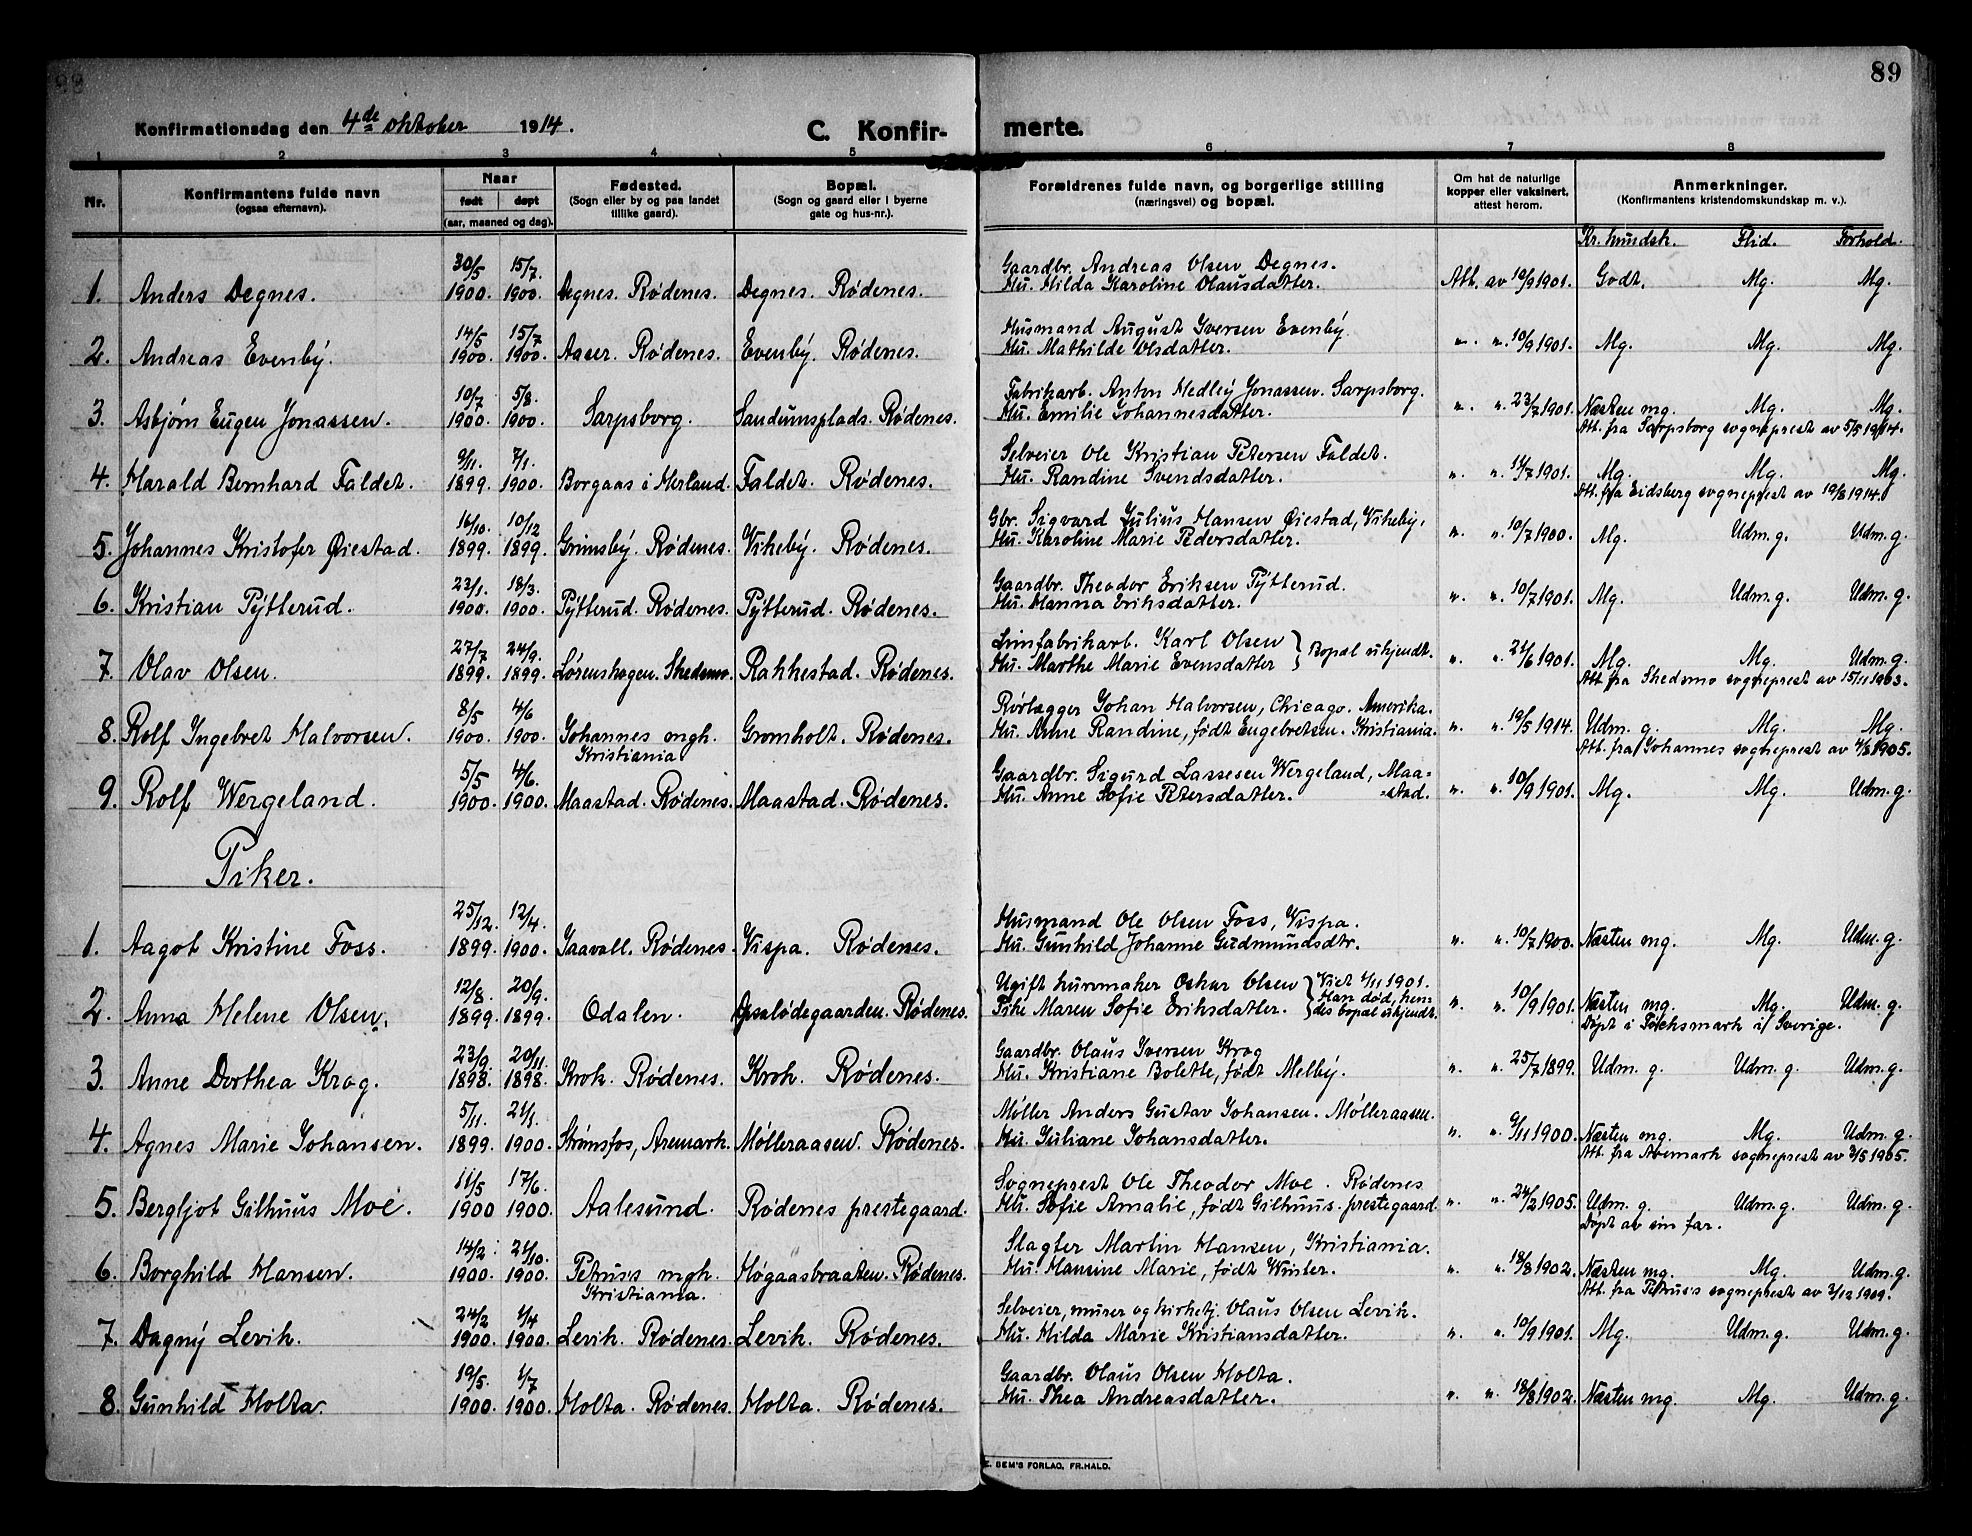 89
Konfirmationsdag den 4de oktober 1914.
C. Konfirmerte.
1 2 3 4 5 6 7 8
Nr. Konfirmantens fulde navn (ogsaa efternavn). Naar født døpt (aar, maaned og dag). Fødested. (Sogn eller by og paa landet tillike gaard). Bopæl. (Sogn og gaard eller i byerne gate og hus-nr.). Forældrenes fulde navn, og borgerlige stilling (næringsvei) og bopæl. Om hat de naturlige kopper eller vaksinert, attest herom. Anmerkninger. (Konfirmantens kristendomskundskap m. v.).
Kr. kundsk. Flid. Forhold.
30/5 15/7 Gaardbr. Andreas Olsen Degnes.
1. Anders Degnes. 1900. 1900. Degnes. Rødenes. Degnes. Rødenes. Hu. Hilda Karoline Olausdatter. Att. av 10/9 1901. Godt. Mg. Mg.
14/5 15/7 Husmand August Iversen Evenby.
2. Andreas Evenby. 1900. 1900. Aaser. Rødenes. Evenby. Rødenes. Hu. Mathilde Olsdatter. " " 10/9 1901. Mg. Mg. Mg.
10/7 5/8. Fabrikarb. Anton Hedley Jonassen. Sarpsborg.
3. Asbjørn Eugen Jonassen. 1900. 1900. Sarpsborg. Sandumsplads. Rødenes. Hu. Emilie Johannesdatter. " " 23/7 1901. Næsten mg. Mg. Mg.
Att. fra Sarpsborg sogneprest av 5/5 1914.
9/11. 7/1. Selveier Ole Kristian Petersen Faldet.
4. Harald Bernhard Faldet. 1899. 1900. Borgaas i Herland. Faldet. Rødenes. Hu. Randine Svendsdatter. " " 11/7 1901. Mg. Mg. Mg.
Att. fra Eidsberg sogneprest av 19/8 1914.
16/10. 10/12 Gbr. Sigvard Julius Hansen Øiestad, Vikeby.
5. Johannes Kristofer Øiestad. 1899. 1899. Grimsby. Rødenes. Vikeby. Rødenes. Hu. Karoline Marie Pedersdatter. " " 10/7 1900. Mg. Udm. g. Udm. g.
23/1. 18/3. Gaardbr. Theodor Eriksen Tytterud.
6. Kristian Tytterud. 1900. 1900. Tytterud. Rødenes. Tytterud. Rødenes. Hu. Hanna Eriksdatter. " " 10/7 1901. Mg. Udm. g. Udm. g.
27/7 24/9. Limfabrikarb. Karl Olsen } Bopæl ukjendt.
7. Olav Olsen. 1899. 1899. Lørenskogen. Skedsmo. Rakkestad. Rødenes. Hu. Marthe Marie Evensdatter " " 21/6 1901. Mg. Mg. Udm. g.
Att. fra Skedsmo sogneprest av 15/11 1903.
8/5 4/6 Rørlægger Johan Halvorsen, Chicago. Amerika.
8. Rolf Ingebret Halvorsen. 1900. 1900. Johannes mgh. Gromholt. Rødenes. Hu. Anne Randine, født Engebretsen. Kristiania. " " 19/5 1914. Udm. g. Mg. Mg.
Kristiania Att. fra Johannes sogneprest av 4/8 1905.
5/5 4/6. Gaardbr. Sigurd Lassesen Wergeland, Maa=
9. Rolf Wergeland. 1900. 1900. Maastad. Rødenes. Maastad. Rødenes. Hu. Anne Sofie Petersdatter. =stad. " " 10/9 1901. Mg. Mg. Udm. g.
Piker.
25/12. 12/4. Husmand Ole Olsen Foss, Vispa.
1. Aagot Kristine Foss. 1899. 1900. Jaavall. Rødenes. Vispa. Rødenes. Hu. Gunhild Johanne Gudmundsdtr. " " 10/7 1900. Næsten mg. Mg. Udm. g.
12/8. 20/9. Ugift kurvmaker Oskar Olsen } Viet 1/11 1901.
Han død, hen-
2. Anna Helene Olsen. 1899. 1899. Odalen. Rødenes. Pike Maren Sofie Eriksdatter. des bopæl ukjendt. " " 10/9 1901. Næsten mg. Mg. Udm. g.
Døpt i Töcksmark i Sverige.
23/9. 20/11. Gaardbr. Olaus Iversen Krog
3. Anne Dorthea Krog. 1898. 1898. Krok. Rødenes. Krok. Rødenes. Hu. Kristiane Bolette, født Melby. " " 25/7 1899. Udm. g. Udm. g. Udm. g.
5/11. 21/1. Møller Anders Gustav Johansen. Mølleraasen.
4. Agnes Marie Johansen. 1899. 1900. Strømsfos, Aremark. Mølleraasen. Rødenes. Hu. Juliane Johansdatter. " " 9/11 1900. Næsten mg. Mg. Udm. g.
Att. fra Aremark sogneprest av 3/5 1905.
11/5 17/6. Sogneprest Ole Theodor Moe. Rødenes
5. Bergljot Gilhuus Moe. 1900 1900. Aalesund. Rødenes prestegaard. Hu. Sofie Amalie, født Gilhuus. prestegaard. " " 24/2 1905. Udm. g. Udm. g. Udm. g.
Døpt av sin far.
14/2. 21/10. Slagter Martin Hansen, Kristiania.
6. Borghild Hansen. 1900. 1900. Petrus's mgh. Høgaasbraaten. Rødenes. Hu. Hansine Marie, født Winter. " " 18/8 1902. Næsten mg. Mg. Udm. g.
Kristiania. Att. fra Petrus's sogneprest av 2/12 1909.
24/2 1/4 Selveier, murer og kirketj. Olaus Olsen Levik.
7. Dagny Levik. 1900. 1900. Levik. Rødenes. Levik. Rødenes. Hu. Hilda Marie Kristiansdatter. " " 10/9 1901. Mg. Udm. g. Udm. g.
19/5. 1/7 Gaardbr. Olaus Olsen Holta.
8. Gunhild Holta. 1900. 1900. Holta. Rødenes. Holta. Rødenes. Hu. Thea Andreasdatter. " " 18/8 1902. Næsten mg. Mg. Udm. g.
SEM'S FORLAG, FR.HALD.